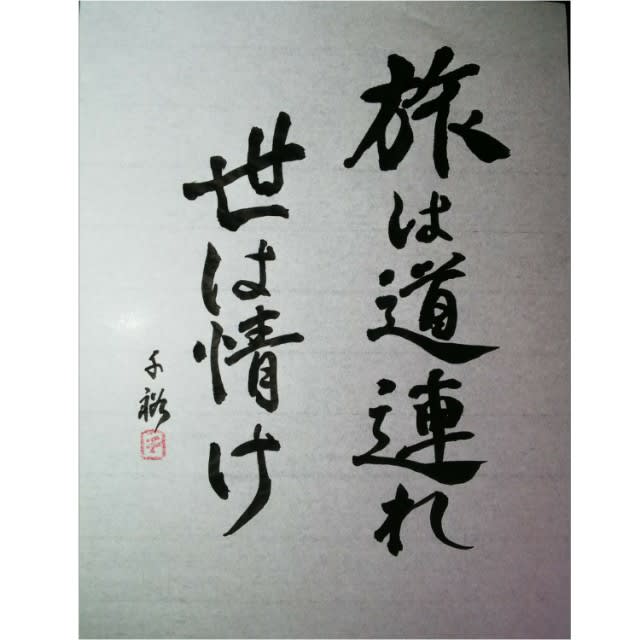 旅は道連れ
世は情け
千裕